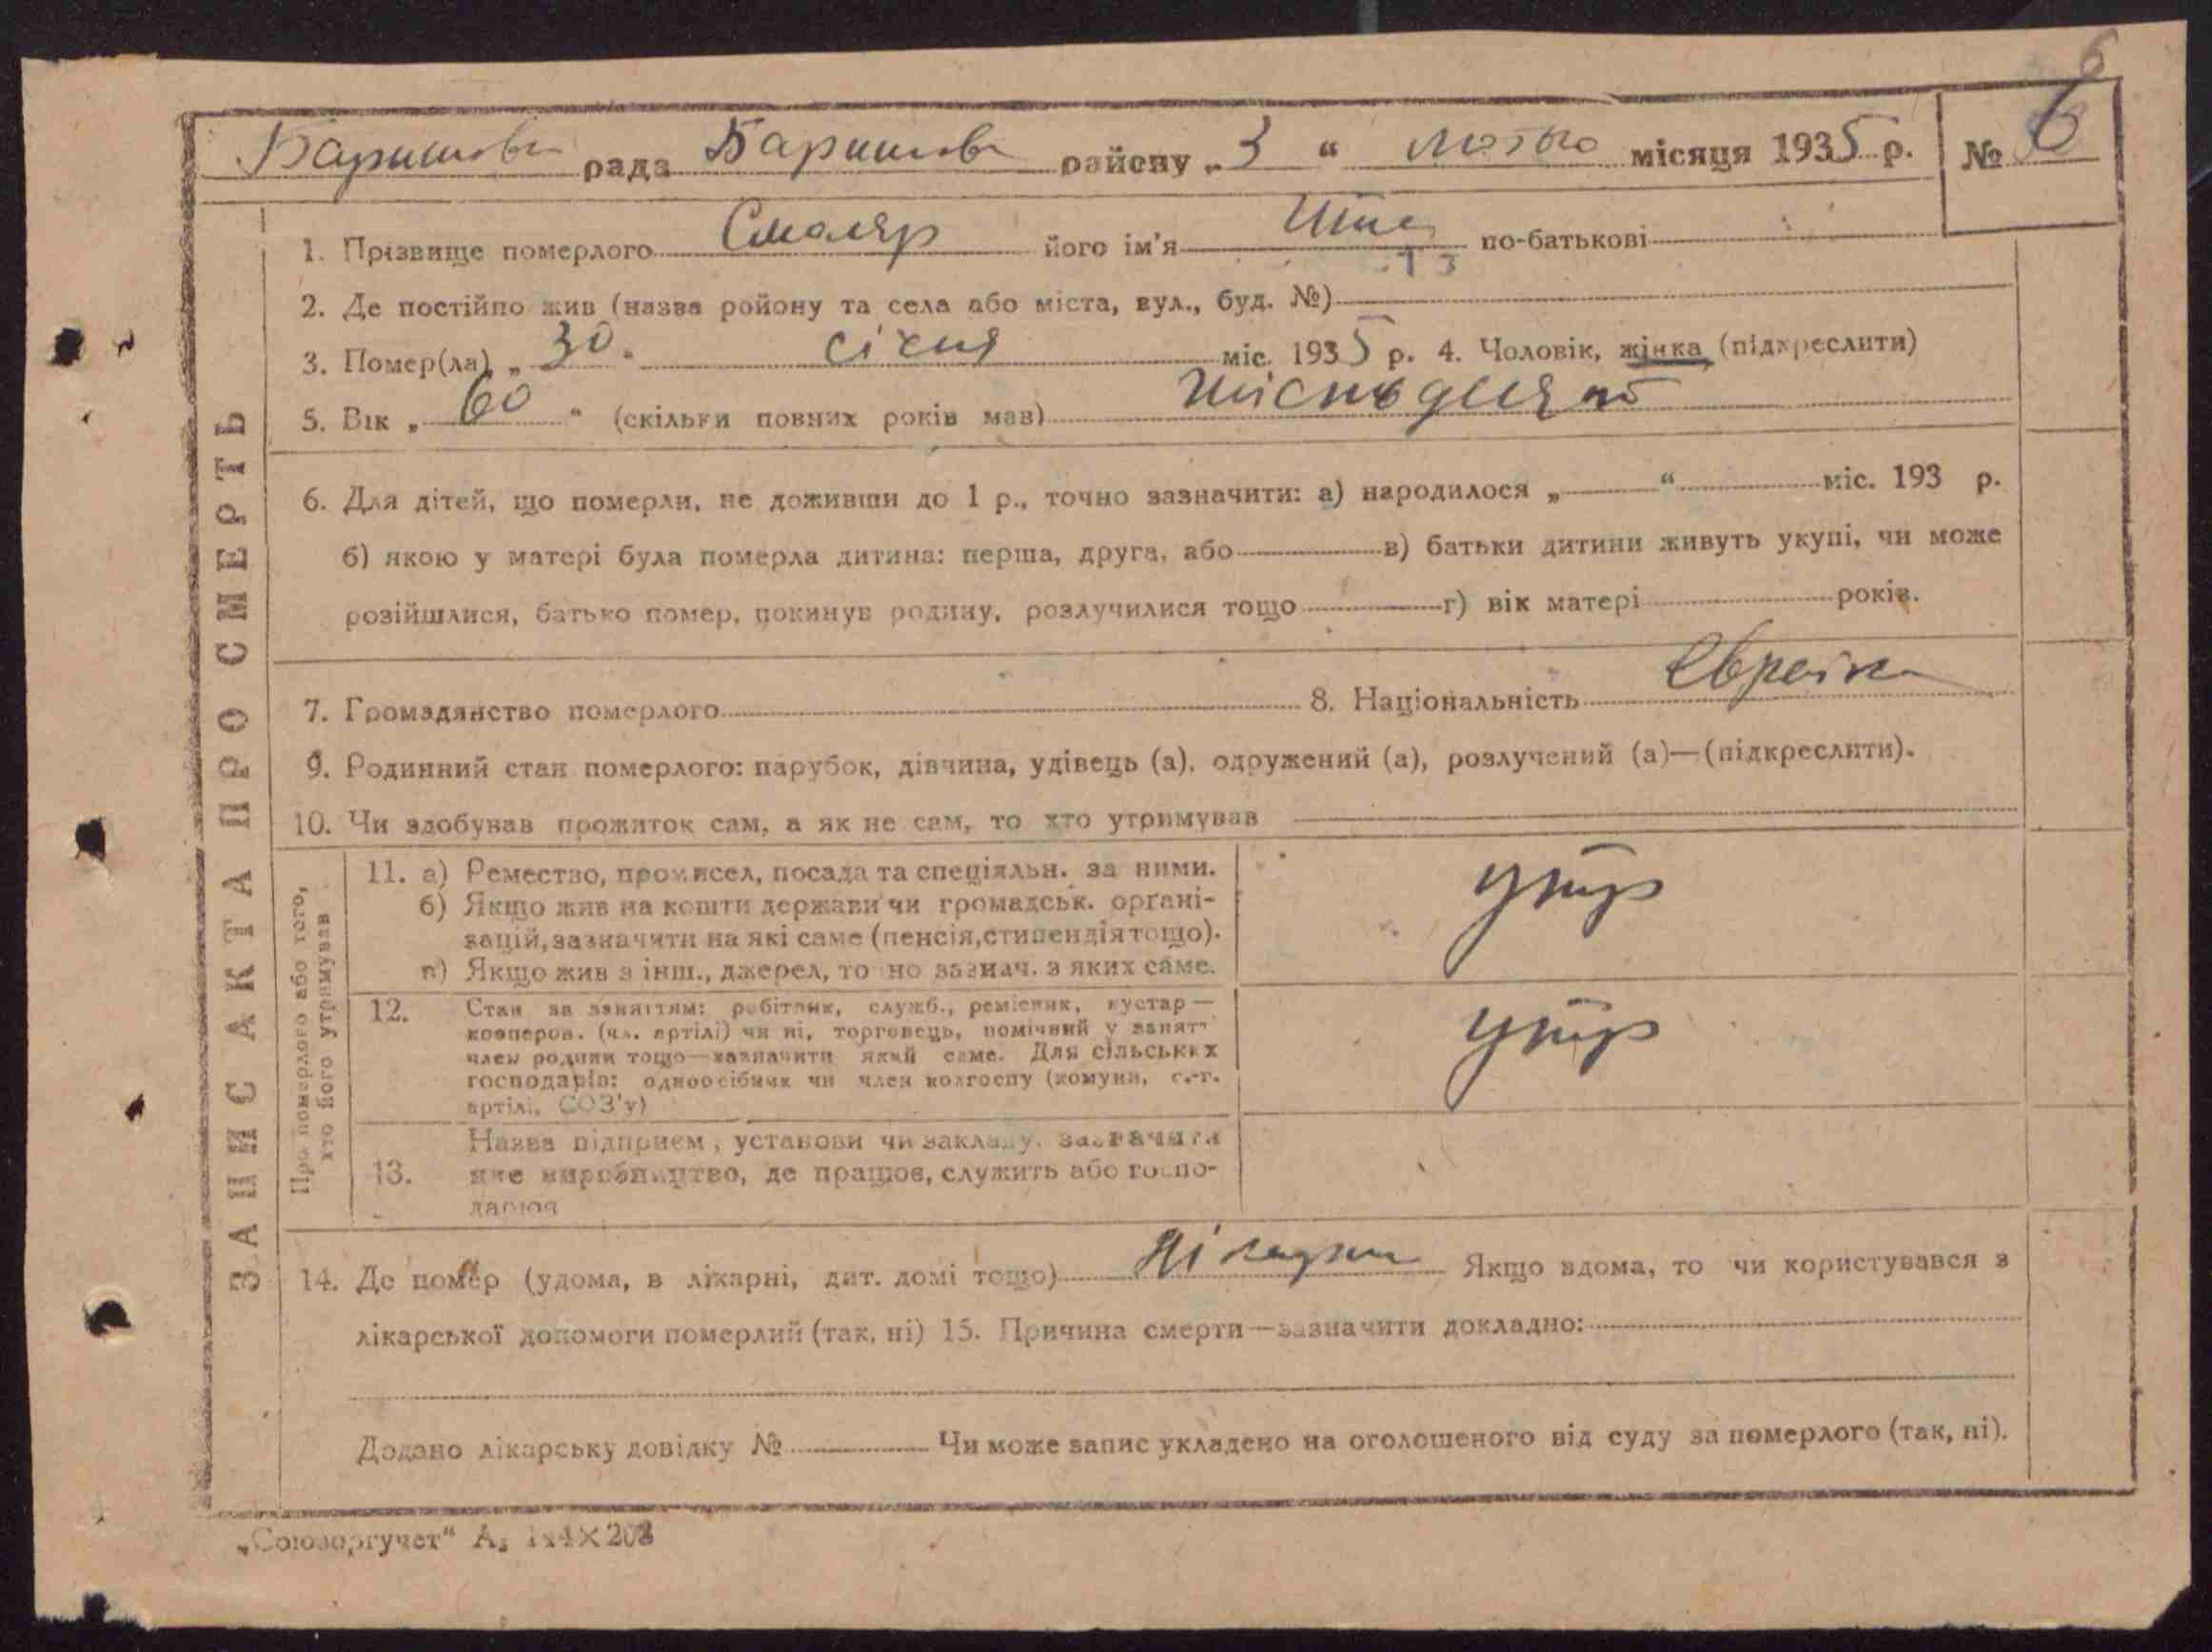 6
Баришівс рада Баришівс району „3“ лютого місяця 1935 р. № 6
1. Прізвище померлого Смоляр його ім'я по-батькові
2. Де постійно жив (назва району та села або міста, вул., буд. №)
3. Помер(ла) „30“ січня міс. 1935 р. 4. Чоловік, жінка (підкреслити)
5. Вік „60“ (скільки повних років мав) шістьдесят
6. Для дітей, що померли, не доживши до 1 р., точно зазначити: а) народилося „ “ міс. 193 р.
б) якою у матері була померла дитина: перша, друга, або в) батьки дитини живуть укупі, чи може
розійшлися, батько помер, покинув родину, розлучилися тощо г) вік матері років.
7. Громадянство померлого 8. Національність Єврейка
9. Родинний стан померлого: парубок, дівчина, удівець (а), одружений (а), розлучений (а)—(підкреслити).
10. Чи здобував прожиток сам, а як не сам, то хто утримував
ЗАПИС АКТА ПРО СМЕРТЬ
Про померлого або того,
хто його утримував
11. а) Ремество, промисел, посада та спеціяльн. за ними.
б) Якщо жив на кошти держави чи громадськ. органі-
зацій, зазначити на які саме (пенсія, стипендія тощо).
в) Якщо жив з інш., джерел, точно зазнач. з яких саме.
утр
12. Стан за заняттям: робітник, служб., ремісник, кустар—
кооперов. (чл. артілі) чи ні, торговець, помічний у занят.
член родини тощо—зазначити який саме. Для сільських
господарів: одноосібник чи член колгоспу (комуни, с.-г.
артілі, СОЗ'у)
утр
13. Назва підприєм., установи чи закладу, зазначити
яке виробництво, де працює, служить або госпо-
дарює
14. Де помер (удома, в лікарні, дит. домі тощо) Якщо вдома, то чи користувався з
лікарської допомоги померлий (так, ні) 15. Причина смерти—зазначити докладно:
Додано лікарську довідку № Чи може запис укладено на оголошеного від суду за померлого (так, ні).
„Союзоргучет“